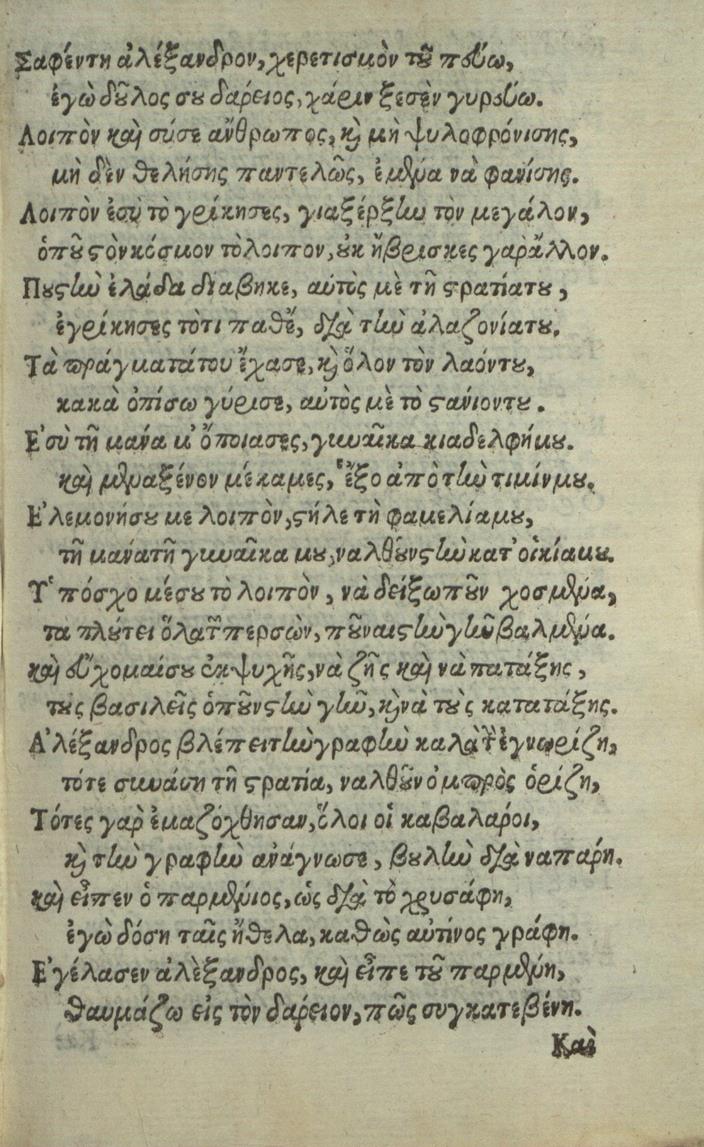 Σαφέντη ἀλέξανδρον, χερετισμὸν τοῦ πέυω,
ἐγὼ δοῦλος σου δαρείος, χάριν ξεσὲν γυρέυω.
Λοιπὸν καὶ σύσε ἄνθρωπος, καὶ μὴ ψυλοφρόνισης,
μὴ δὲν θελήσης παντελῶς, ἐμένα νὰ φανίσης.
Λοιπὸν ἐσὺ τὸ γρίκησες, γιαξέρξην τὸν μεγάλον,
ὁποῦ στὸν κόσμον τὸ λοιπον, οὐκ ἤβρισκες γαρ ἄλλον.
Πουστὴν ἐλάδα διαβηκε, αὐτὸς μὲ τῆ στρατίατου,
ἐγρίκησες τότι παθέ, διὰ τὴν ἀλαζονίατου.
Τὰ πράγματάτου ἔχασε, καὶ ὅλον τὸν λαόντου,
κακὰ ὀπίσω γύρισε, αὐτὸς μὲ τὸ στανιοντου.
Ἐσὺ τῆ μάνα μ' ὅποιασες, γυναῖκα κιαδελφήμου.
καὶ μέναξένον μέκαμες, ἔξο ἀπὸ τὴν τιμίνμου.
Ἐλεμονήσου με λοιπὸν, στήλε τὴ φαμελίαμου,
τῆ μάνατῆ γυναῖκα μου, ναλθοῦν στὴν κατ' οἰκίαμου.
Ὑπόσχομέσου τὸ λοιπὸν, νὰ δείξωποῦν χοσμένα,
τα πλούτει ὅλατῶν περσῶν, ποῦναιστὴν γῆν βαλμένα.
καὶ ἔυχομαίσου ἐκ ψυχῆς, νὰ ζῆς καὶ νὰ πατάξης,
τους βασιλεῖς ὁποῦν στὴν γῆν, καὶ νὰ τοὺς κατατάξης.
Ἀλέξανδρος βλέπει τὴν γραφὴν καλὰ τὴν ἐγνωρίζη,
τότε συνάση τῆ στρατία, ναλθοῦν ὀμπρὸς ὁρίζη,
Τότες γαρ ἐμαζόχθησαν, ὅλοι οἱ καβαλαροι,
καὶ τὴν γραφὴν ἀνάγνωσε, βουλὴν διὰ ναπάρη.
καὶ εἶπεν ὁ παρμένιος, ὡς διὰ τὸ χρυσάφη,
ἐγὼ δόση ταῖς ἤθελα, καθὼς αὐτίνος γράφη.
Ἐγέλασεν ἀλέξανδρος, καὶ εἶπε τοῦ παρμένη,
θαυμάζω εἰς τὸν δαρειον, πῶς συγκατεβένη.
Καὶ